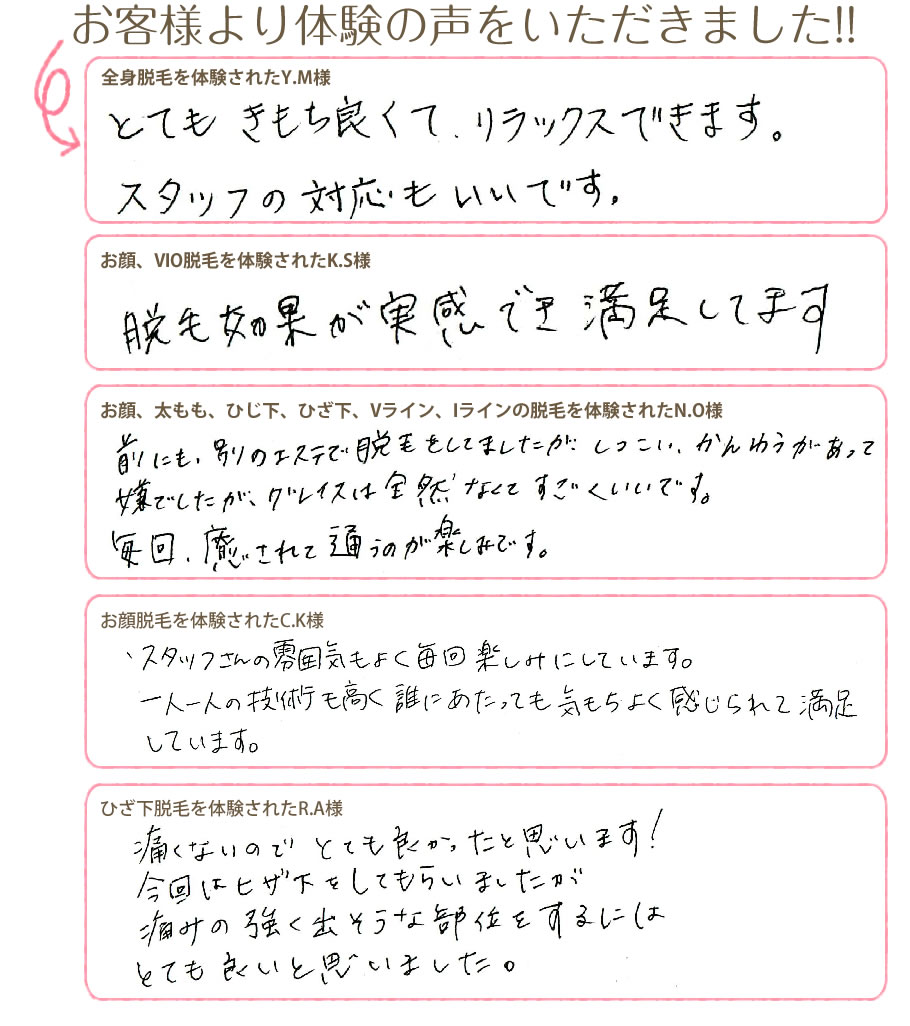 お客様より体験の声をいただきました!!
全身脱毛を体験されたY.M様
とても きもち良くて、リラックスできます。
スタッフの対応もいいです。
お顔、VIO脱毛を体験されたK.S様
脱毛効果が実感でき満足してます
お顔、太もも、ひじ下、ひざ下、Vライン、Iラインの脱毛を体験されたN.O様
前にも、別のエステで脱毛をしてましたが、しつこい、かんゆうがあって
嫌でしたが、グレイスは全然なくてすごくいいです。
毎回、癒されて通うのが楽しみです。
お顔脱毛を体験されたC.K様
、スタッフさんの雰囲気もよく毎回楽しみにしています。
一人一人の技術も高く誰にあたっても気もちよく感じられて満足
しています。
ひざ下脱毛を体験されたR.A様
痛くないので とても良かったと思います!
今回はヒザ下をしてもらいましたが
痛みの強く出そうな部位をするには
とても良いと思いました。